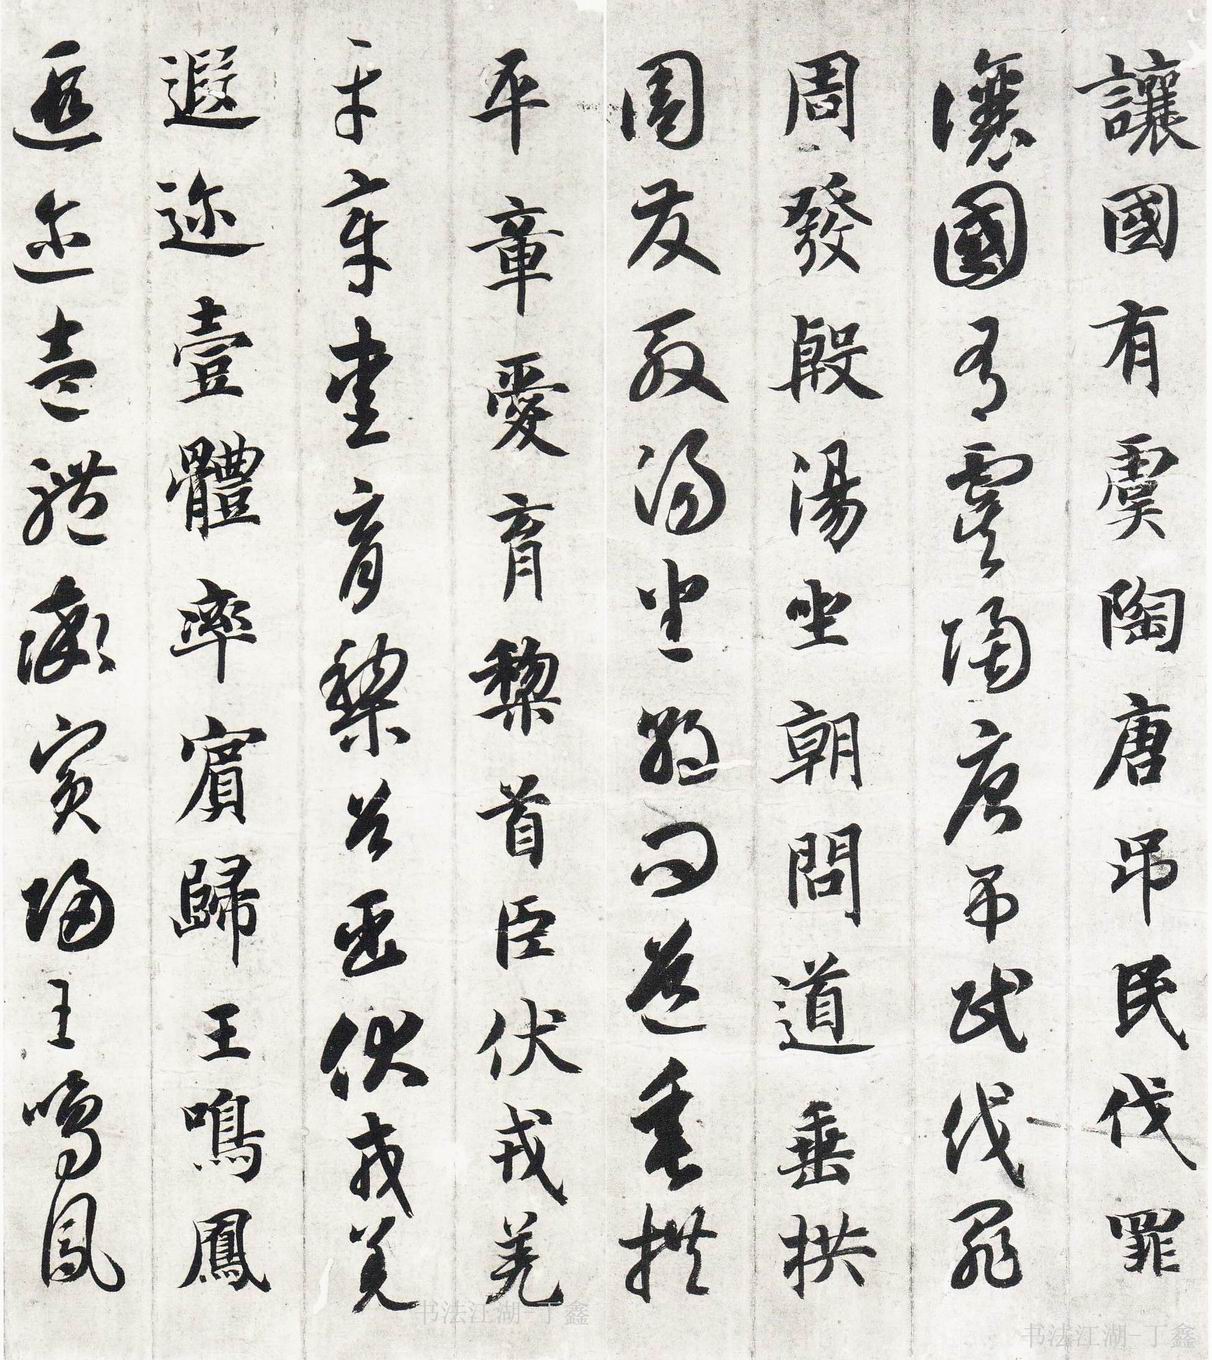 讓國有虞陶唐吊民伐罪
讓國有虞陶唐吊民伐罪
周發殷湯坐朝問道垂拱
周發殷湯坐朝問道垂拱
平章愛育黎首臣伏戎羌
平章愛育黎首臣伏戎羌
遐迩壹體率賓歸王鳴鳳
遐迩壹體率賓歸王鳴鳳
书法江湖-丁鑫
书法江湖-丁鑫